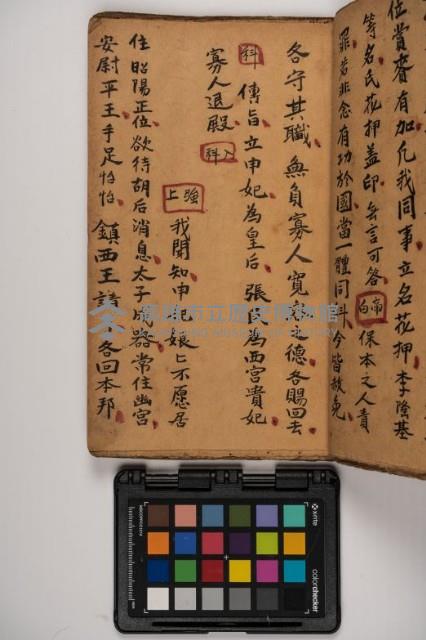 位賞賚有加凡我同事立名花押李陰基
等名氏花押盖印去言可答帝白保本之人責
罪若非念有功於國當一體同科今皆赦免
各守其職無負寡人寬之德各賜回去
科傳旨立申妃為皇后張為西宮貴妃
寡人退殿入科
強上我聞知申娘匕不愿居
住昭陽正位欲待胡后消息太子成器常住幽宮
安尉平王手足怡怡鎮西王請各回本邦
高雄市立歷史博物館
KAOHSIUNG MUSEUM OF HISTORY
x-rite
colorchecker